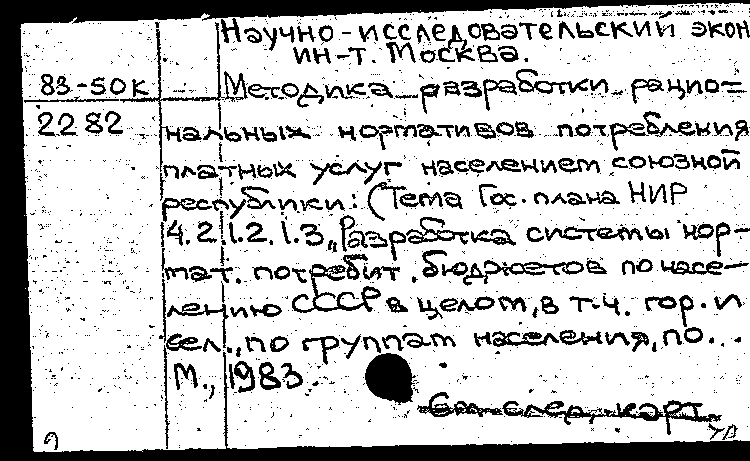 Научно-исследовательский экон
ин-т. Москва.
83-50К Методика разработки рацио=
2282 нальных нормативов потребления
платных услуг населением союзной
республики: (Тема Гос. плана НИР
4.2.1.2.1.3 „Разработка системы нор-
мат. потребит. бюджетов по насе-
лению СССР в целом, в т.ч. гор. и
сел., по группам населения, по...
М., 1983.
См. след. карт.